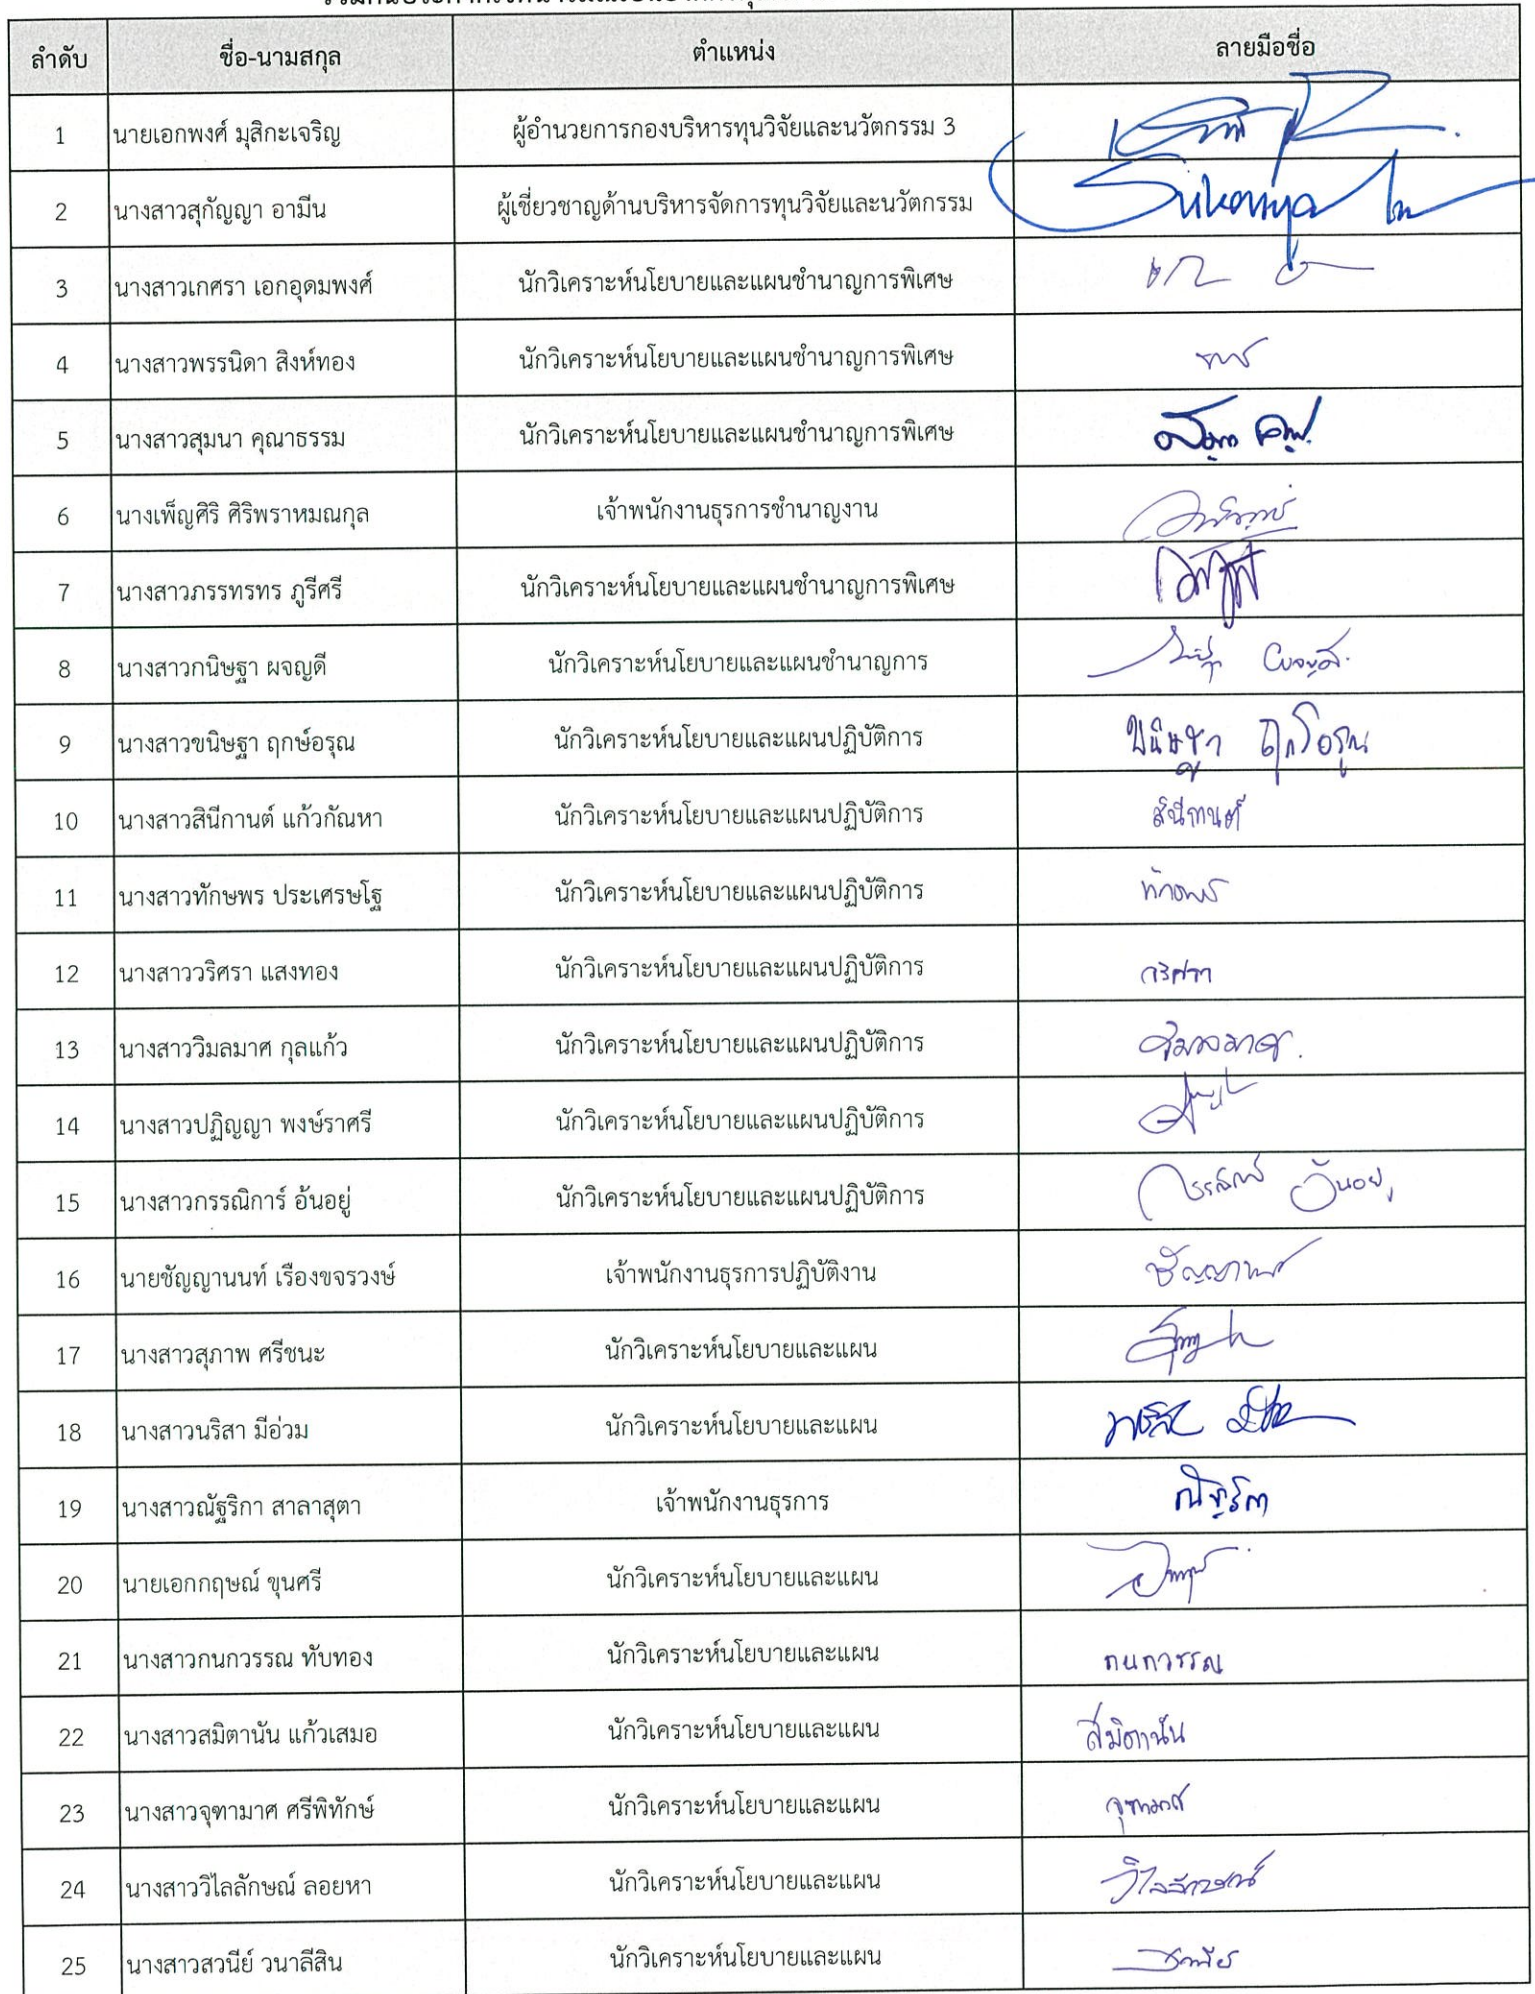 ลำดับ ชื่อ-นามสกุล ตำแหน่ง ลายมือชื่อ
1 นายเอกพงศ์ มุสิกะเจริญ ผู้อำนวยการกองบริหารทุนวิจัยและนวัตกรรม 3
2 นางสาวสุกัญญา อามีน ผู้เชี่ยวชาญด้านบริหารจัดการทุนวิจัยและนวัตกรรม Sukanya
3 นางสาวเกศรา เอกอุดมพงศ์ นักวิเคราะห์นโยบายและแผนชำนาญการพิเศษ
4 นางสาวพรรนิดา สิงห์ทอง นักวิเคราะห์นโยบายและแผนชำนาญการพิเศษ
5 นางสาวสุมนา คุณาธรรม นักวิเคราะห์นโยบายและแผนชำนาญการพิเศษ
6 นางเพ็ญศิริ ศิริพราหมณกุล เจ้าพนักงานธุรการชำนาญงาน
7 นางสาวภรรทรทร ภูรีศรี นักวิเคราะห์นโยบายและแผนชำนาญการพิเศษ
8 นางสาวกนิษฐา ผจญดี นักวิเคราะห์นโยบายและแผนชำนาญการ
9 นางสาวขนิษฐา ฤกษ์อรุณ นักวิเคราะห์นโยบายและแผนปฏิบัติการ ขนิษฐา ฤกษ์อรุณ
10 นางสาวสินีกานต์ แก้วกัณหา นักวิเคราะห์นโยบายและแผนปฏิบัติการ สินีกานต์
11 นางสาวทักษพร ประเศรษโฐ นักวิเคราะห์นโยบายและแผนปฏิบัติการ ทักษพร
12 นางสาววริศรา แสงทอง นักวิเคราะห์นโยบายและแผนปฏิบัติการ วริศรา
13 นางสาววิมลมาศ กุลแก้ว นักวิเคราะห์นโยบายและแผนปฏิบัติการ วิมลมาศ
14 นางสาวปฏิญญา พงษ์ราศรี นักวิเคราะห์นโยบายและแผนปฏิบัติการ
15 นางสาวกรรณิการ์ อ้นอยู่ นักวิเคราะห์นโยบายและแผนปฏิบัติการ กรรณิการ์ อ้นอยู่
16 นายชัญญานนท์ เรืองขจรวงษ์ เจ้าพนักงานธุรการปฏิบัติงาน ชัญญานนท์
17 นางสาวสุภาพ ศรีชนะ นักวิเคราะห์นโยบายและแผน
18 นางสาวนริสา มีอ่วม นักวิเคราะห์นโยบายและแผน
19 นางสาวณัฐริกา สาลาสุตา เจ้าพนักงานธุรการ ณัฐริกา
20 นายเอกกฤษณ์ ขุนศรี นักวิเคราะห์นโยบายและแผน
21 นางสาวกนกวรรณ ทับทอง นักวิเคราะห์นโยบายและแผน กนกวรรณ
22 นางสาวสมิตานัน แก้วเสมอ นักวิเคราะห์นโยบายและแผน สมิตานัน
23 นางสาวจุฑามาศ ศรีพิทักษ์ นักวิเคราะห์นโยบายและแผน จุฑามาศ
24 นางสาววิไลลักษณ์ ลอยหา นักวิเคราะห์นโยบายและแผน วิไลลักษณ์
25 นางสาวสวนีย์ วนาลีสิน นักวิเคราะห์นโยบายและแผน สวนีย์